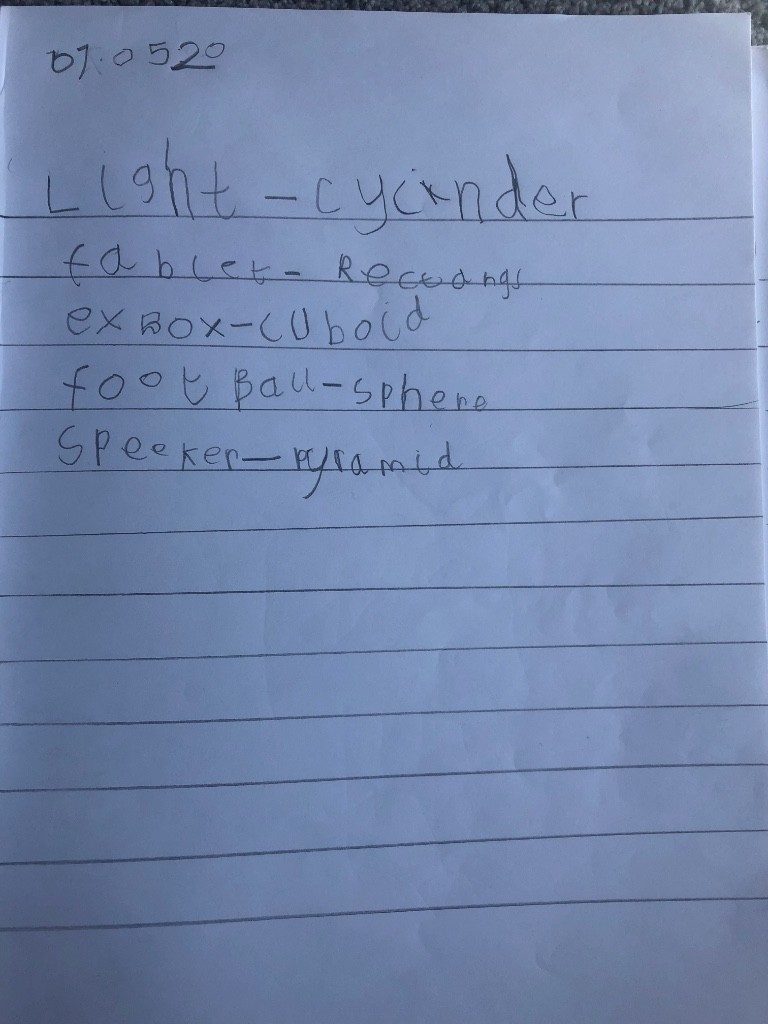 07.0520
Light - cycinder
tablet - Rectangs
exBOX-CUboid
footBall-sphere
Speeker-pyramid